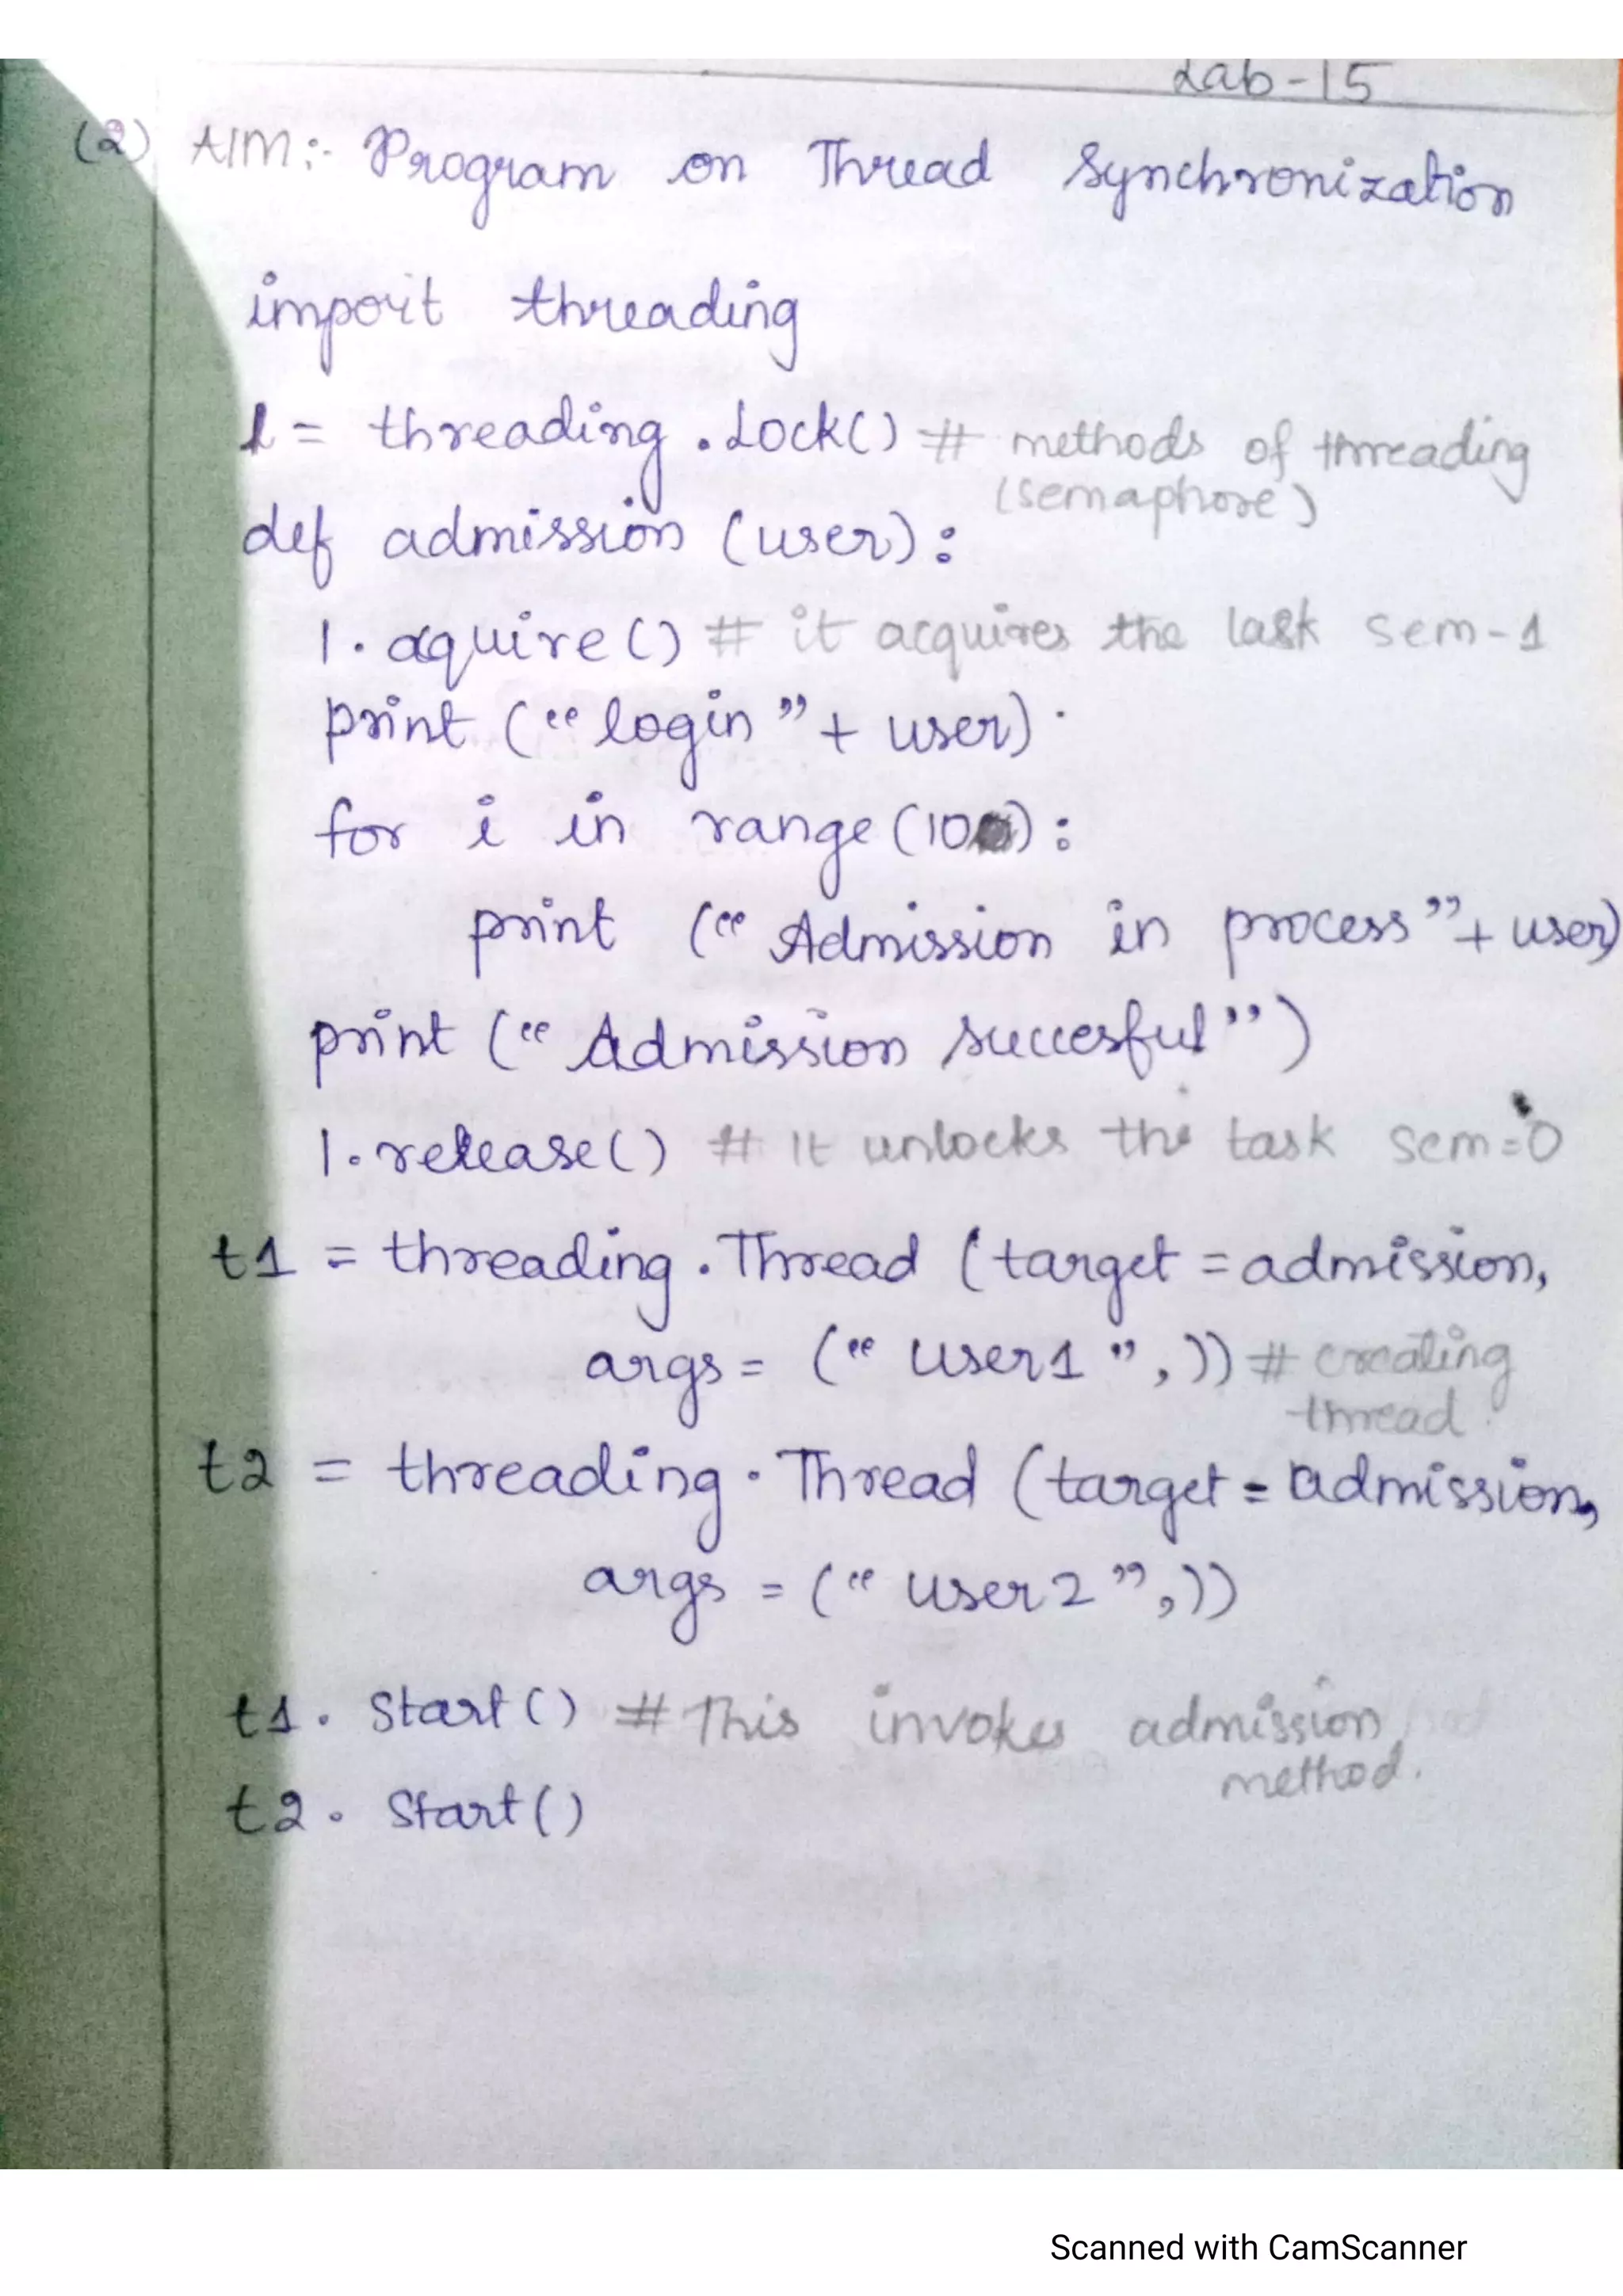 Lab-15
(2) AIM:- Program on Thread Synchronization
import threading
l = threading.Lock() # methods of threading
(semaphore)
def admission (user):
l.aquire() # it acquires the task sem-1
print ("login" + user)
for i in range(10):
print ("Admission in process" + user)
print ("Admission succesful")
l.release() # It unlocks the task sem=0
t1 = threading.Thread (target = admission,
args = ("user1",)) # creating
thread.
t2 = threading.Thread (target = admission,
args = ("user2",))
t1.start() # This invokes admission
method.
t2.start()
Scanned with CamScanner